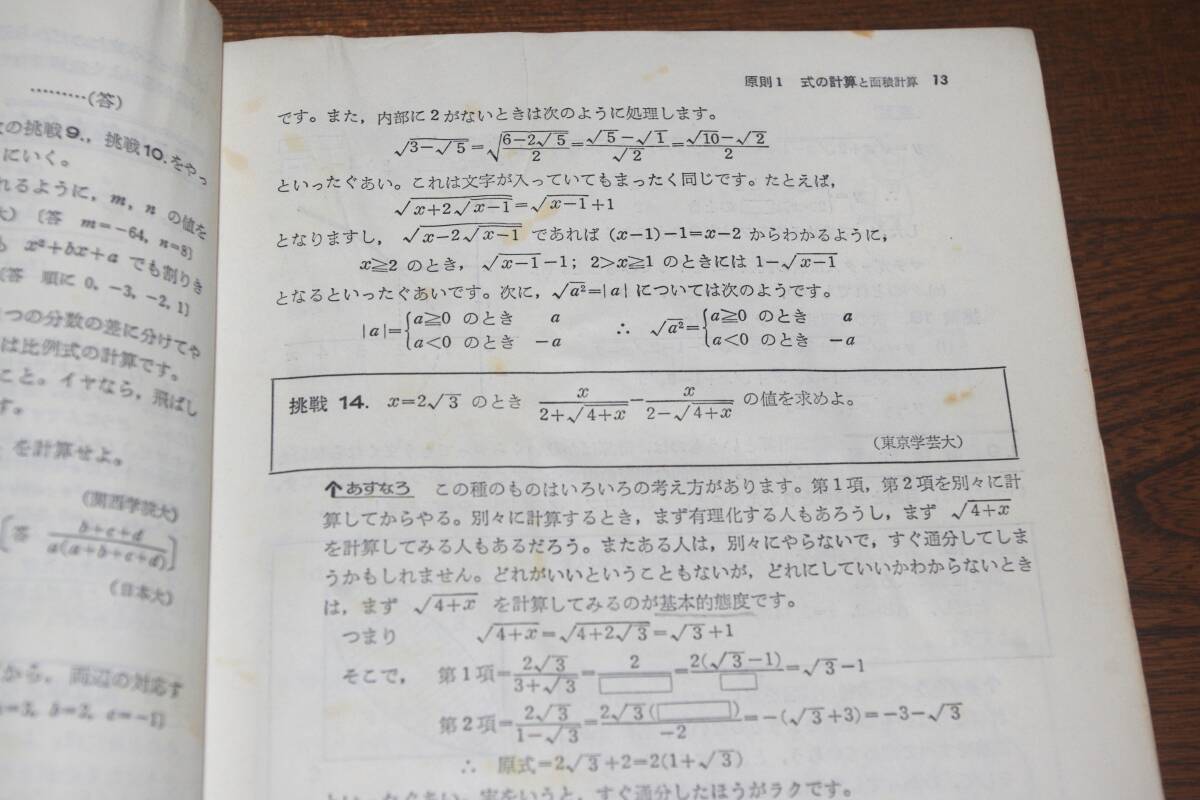 ………(答)
の挑戦9.，挑戦10.をやっ
にいく。
れるように，m，n の値を
大) 〔答 m=-64, n=8〕
も x²+bx+a でも割りき
〔答 順に 0, -3, -2, 1〕
つの分数の差に分けてや
は比例式の計算です。
こと。イヤなら，飛ばし
す。
を計算せよ。
(関西学院大)
〔答 (b+c+d)/(a(a+b+c+d))〕
(日本大)
から。両辺の対応す
=3, b=2, c=-1〕
原則1 式の計算と面積計算 13
です。また，内部に2がないときは次のように処理します。
√(3-√5)=√((6-2√5)/2)=(√5-√1)/√2=(√10-√2)/2
といったぐあい。これは文字が入っていてもまったく同じです。たとえば，
√(x+2√(x-1))=√(x-1)+1
となりますし，√(x-2√(x-1)) であれば (x-1)-1=x-2 からわかるように，
x≧2 のとき，√(x-1)-1; 2>x≧1 のときには 1-√(x-1)
となるといったぐあいです。次に，√a²=|a| については次のようです。
|a|={a≧0 のとき a ∴ √a²={a≧0 のとき a
a<0 のとき -a a<0 のとき -a
挑戦 14. x=2√3 のとき x/(2+√(4+x))-x/(2-√(4+x)) の値を求めよ。
(東京学芸大)
↑あすなろ この種のものはいろいろの考え方があります。第1項，第2項を別々に計
算してからやる。別々に計算するとき，まず有理化する人もあろうし，まず √(4+x)
を計算してみる人もあるだろう。またある人は，別々にやらないで，すぐ通分してしま
うかもしれません。どれがいいということもないが，どれにしていいかわからないとき
は，まず √(4+x) を計算してみるのが基本的態度です。
つまり √(4+x)=√(4+2√3)=√3+1
そこで， 第1項=2√3/(3+√3)=2/□=2(√3-1)/□=√3-1
第2項=2√3/(1-√3)=2√3(□)/-2=-(√3+3)=-3-√3
∴ 原式=2√3+2=2(1+√3)
といったぐあい。実をいうと，すぐ通分したほうがラクです。